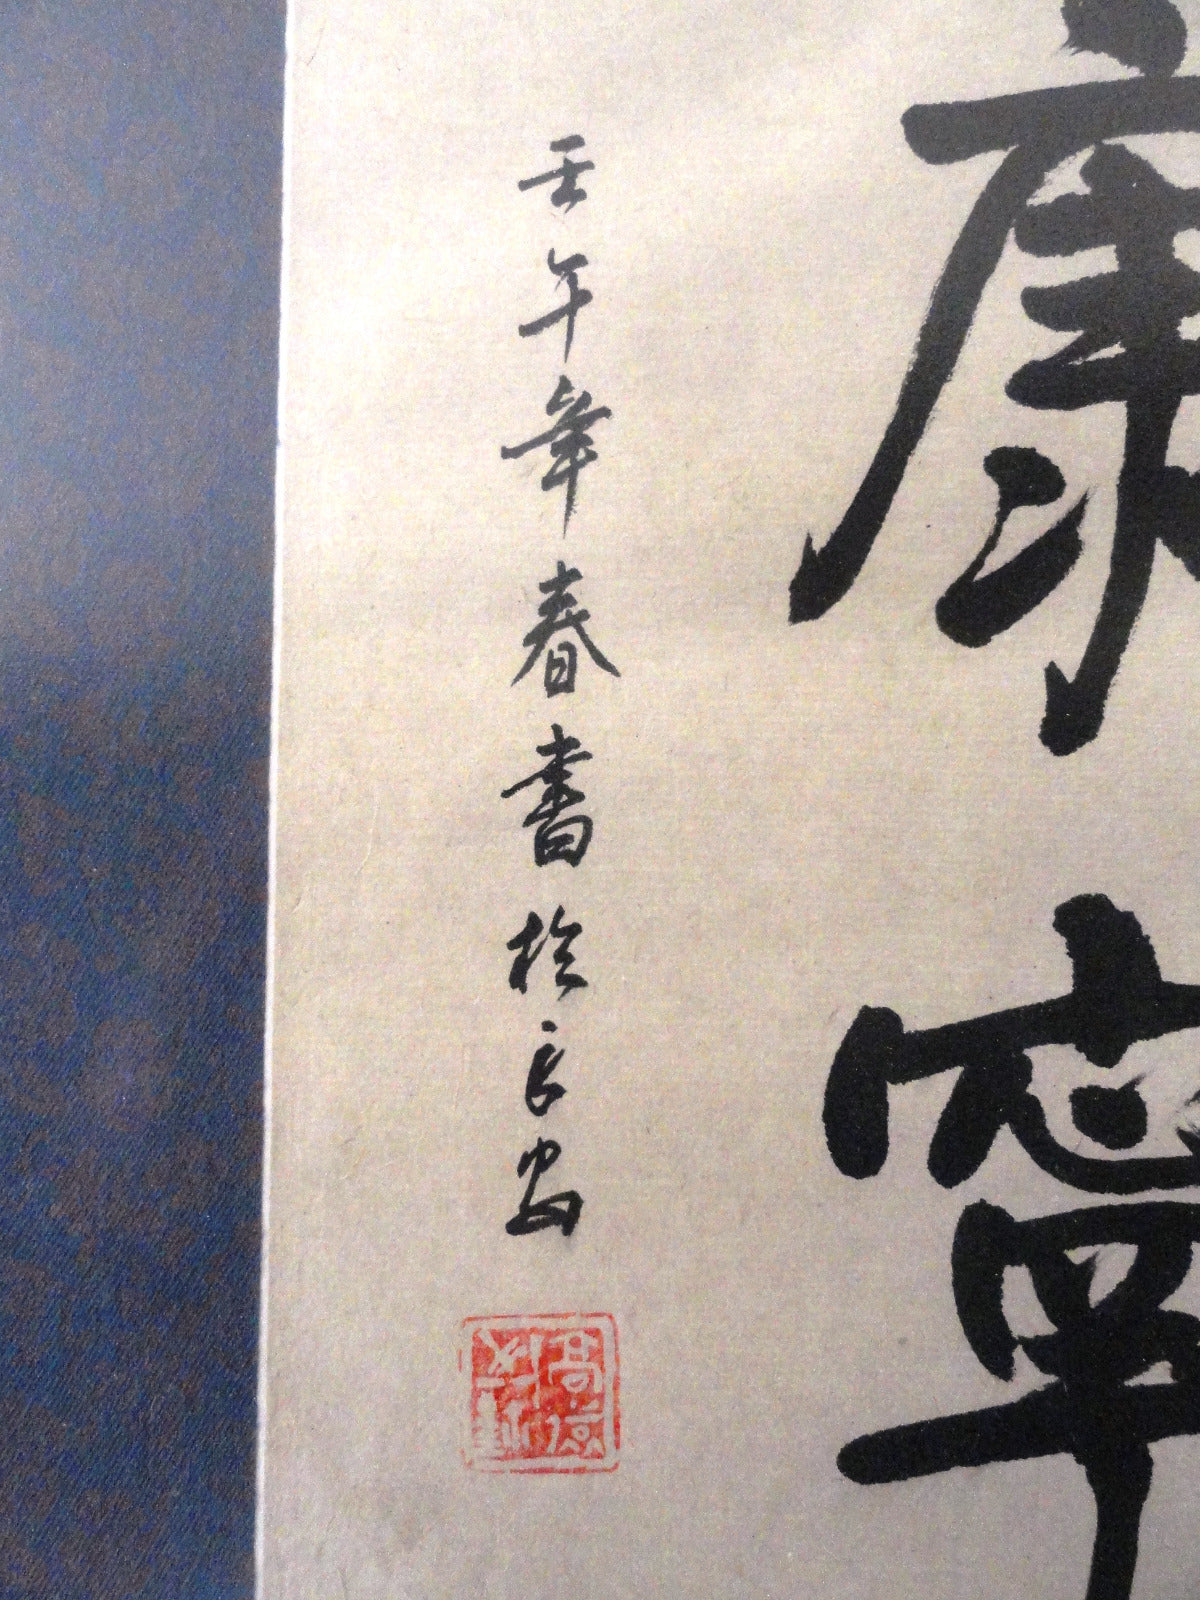 康寧
壬午年春書於長安